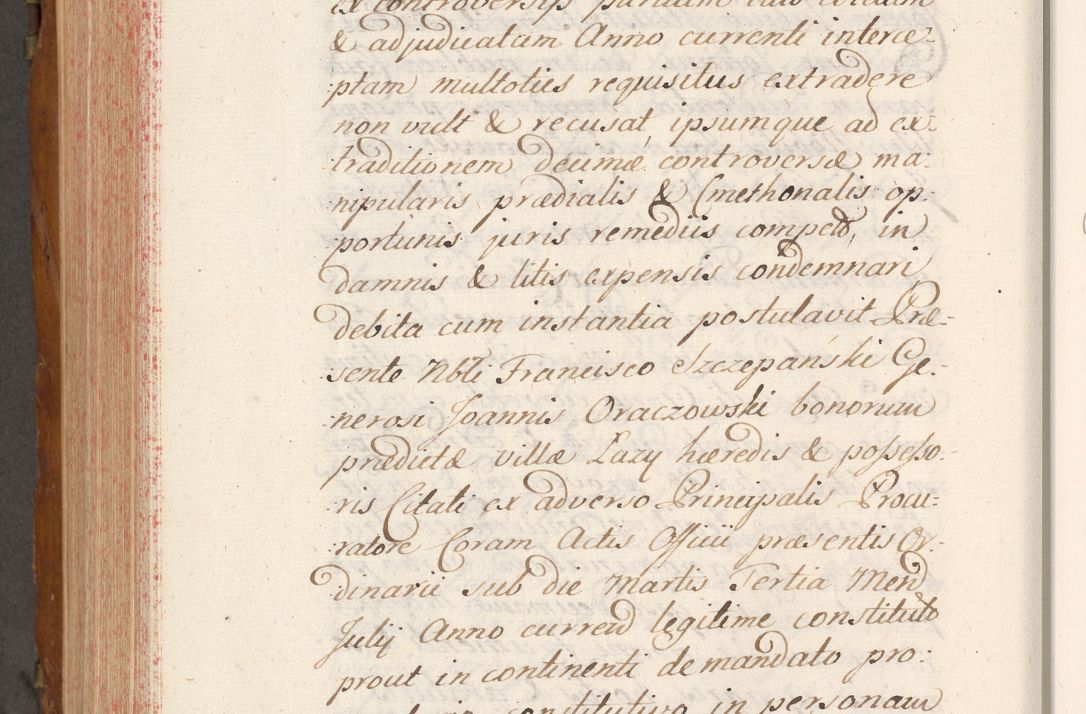 ex controversijs
& adjudicatam Anno currenti interce-
ptam multoties requisitus extradere
non vult & recusat, ipsumque ad ex-
traditionem decimæ controversæ ma-
nipularis prædialis & Cmethonalis op-
portunis juris remediis compelli, in
damnis & litis expensis condemnari
debita cum instantia postulavit Præ-
sente Nbli Francisco Szczepański Ge-
nerosi Joannis Oraczowski bonorum
prædictæ villæ Łazy hæredis & possesso-
ris Citati ex adverso Principalis Procu-
ratore Coram Actis Officii præsentis Or-
dinarii sub die Martis Tertia Mens
Julij Anno curren legitime constituto
prout in continenti de mandato pro-
constitutivo in personam